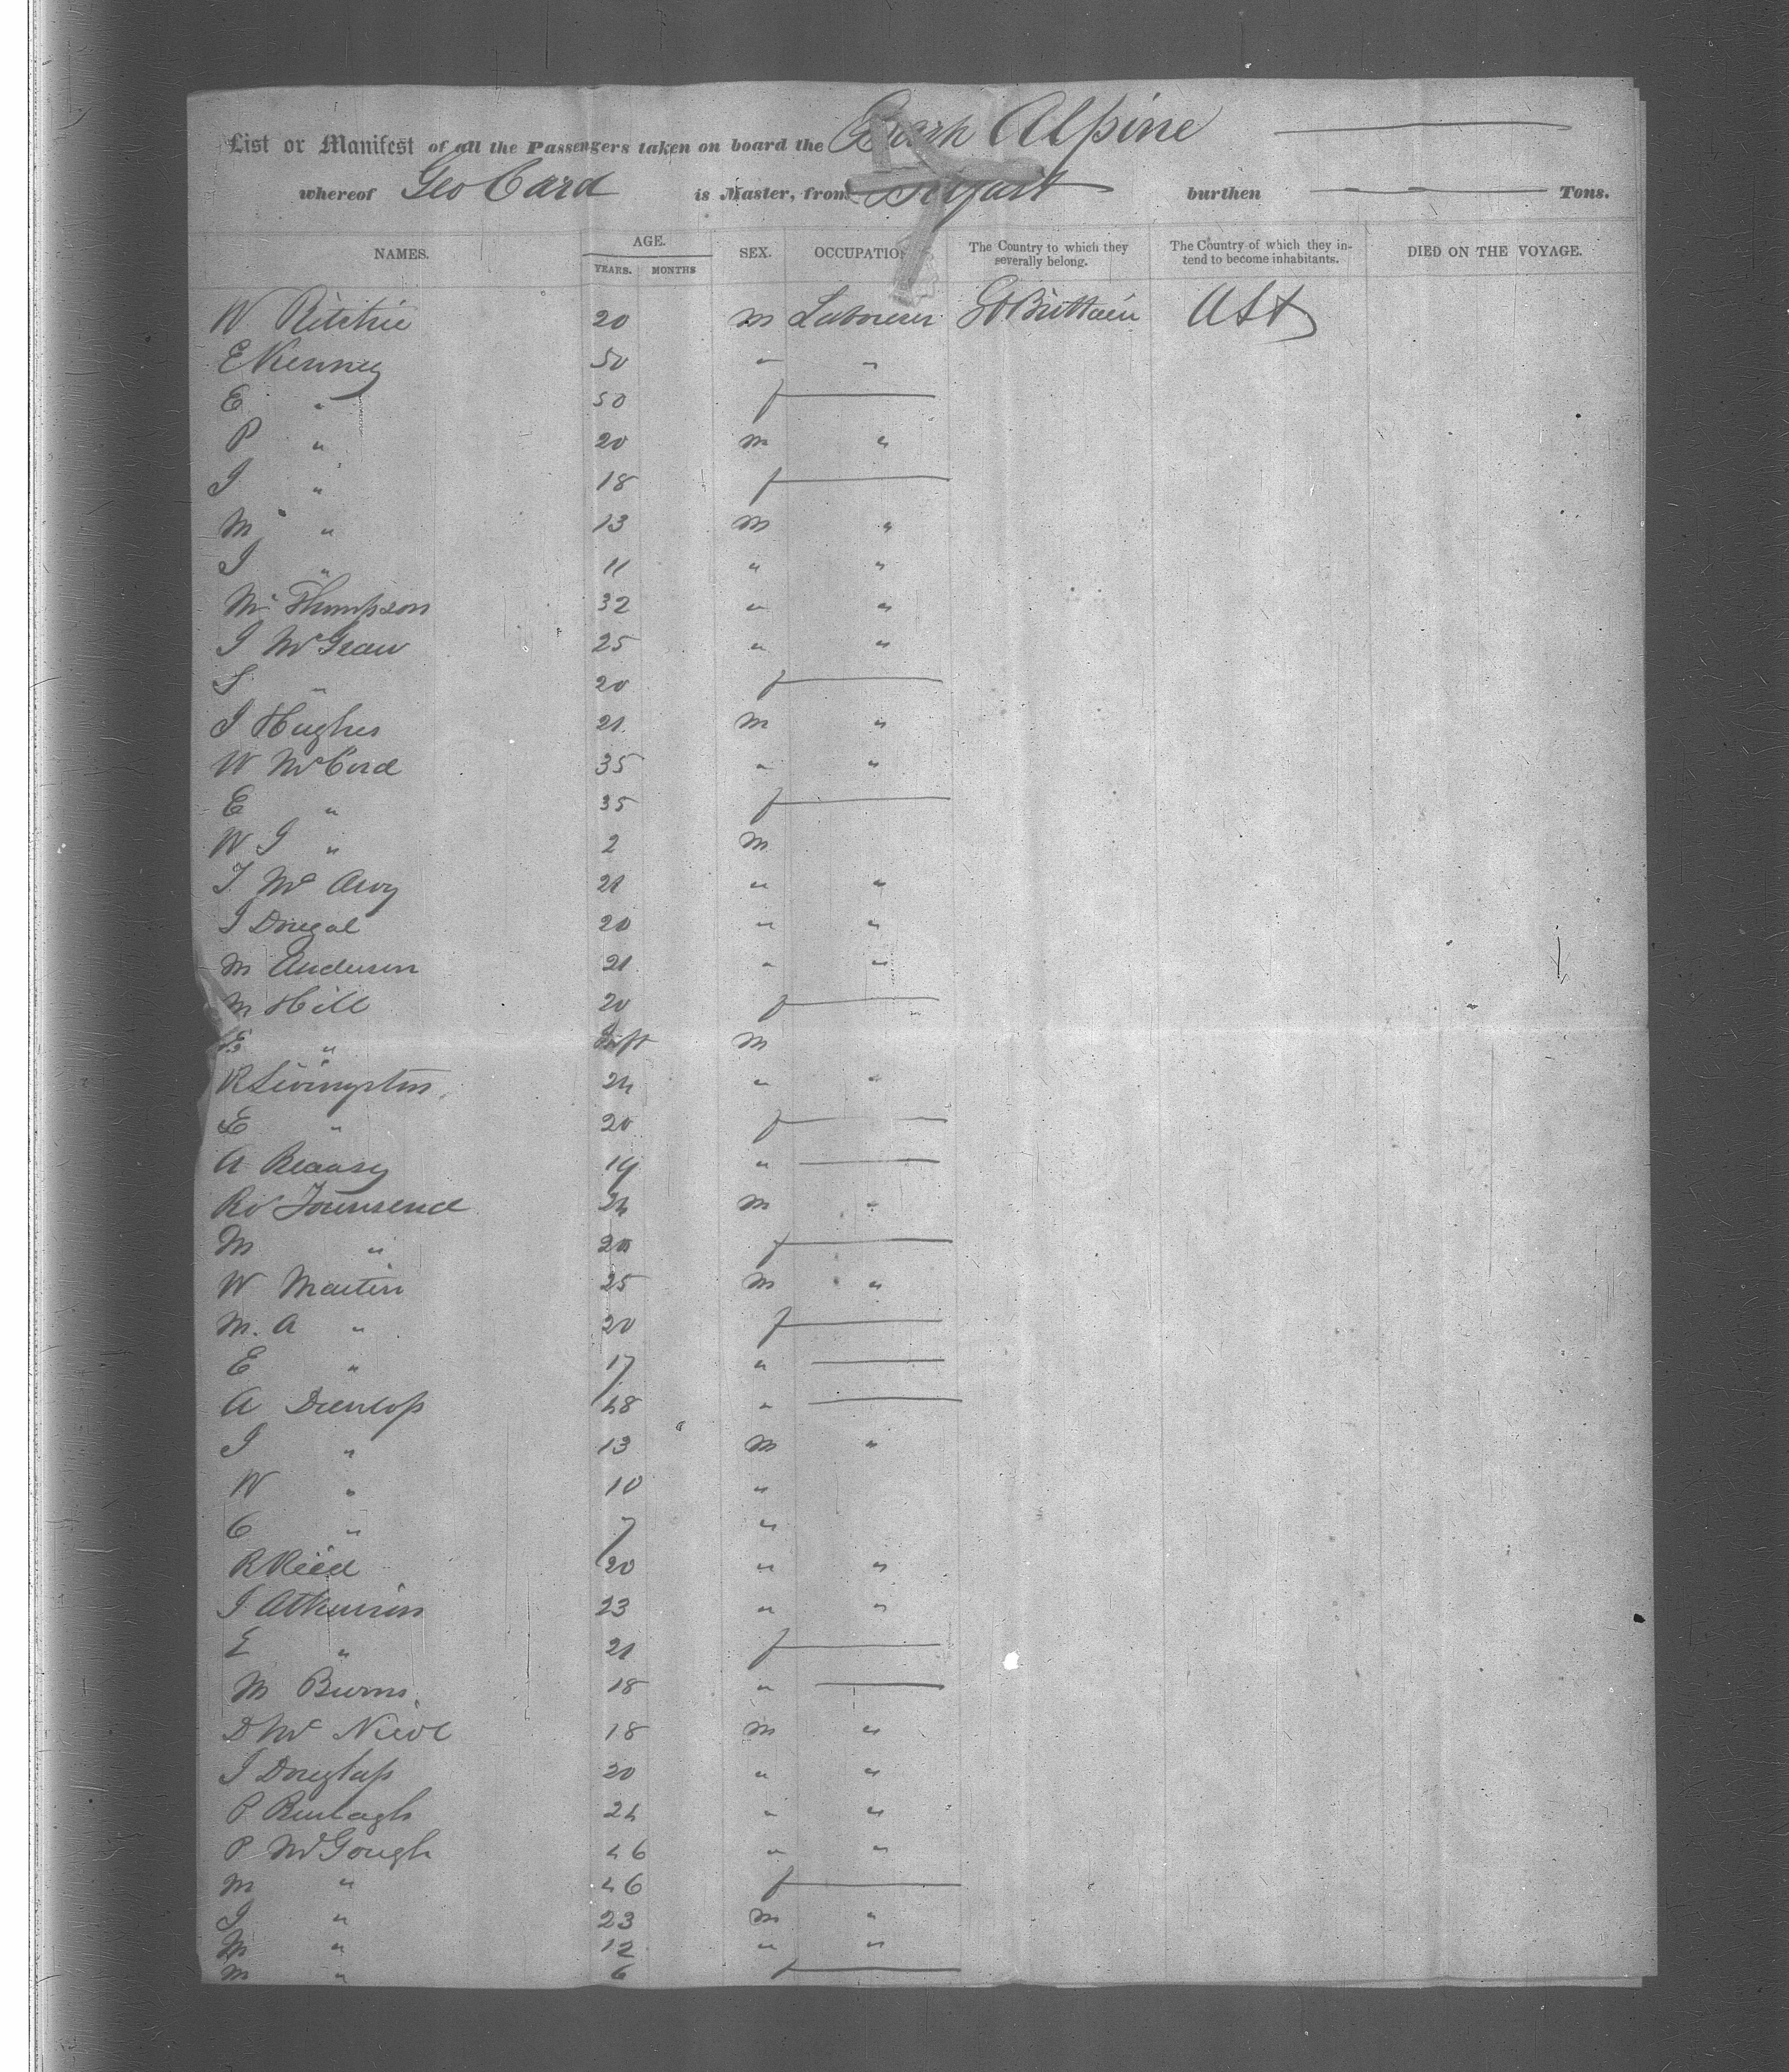 List or Manifest of all the Passengers taken on board the Bark Alpine
whereof Geo Card is Master, from Belfast burthen — — — Tons.
NAMES. AGE. YEARS. MONTHS SEX. OCCUPATION The Country to which they severally belong. The Country of which they intend to become inhabitants. DIED ON THE VOYAGE.
W Ritchie 20 m Labourer Gt Brittain USA
E Kenney 50 " "
E " 50 f —
P " 20 m "
J " 18 f —
M " 13 m "
J " 11 " "
M Thompson 32 " "
J McGraw 25 " "
S " 20 f —
J Hughes 21 m "
W McCord 35 " "
E " 35 f —
W J " 2 m
J Mc 21 " "
J Dougal 20 " "
M Anderson 21 " "
M Hill 20 f —
E " Inft m
R Livingston 24 " "
E " 20 f —
A 19 " —
Ro Townsend 24 m "
M " 20 f —
W Martin 25 m "
M. A " 20 f —
E " 17 " —
A Dunlop 48 " —
J " 13 m "
W " 10 "
C " 7 "
R Reed 20 " "
J Atkinson 23 " "
E " 21 f —
M Burns 18 " —
D Mc Nicol 18 m "
J Douglass 20 " "
P 24 " "
P McGough 46 " "
M " 46 f —
J " 23 m "
M " 12 " "
M " 6 f —